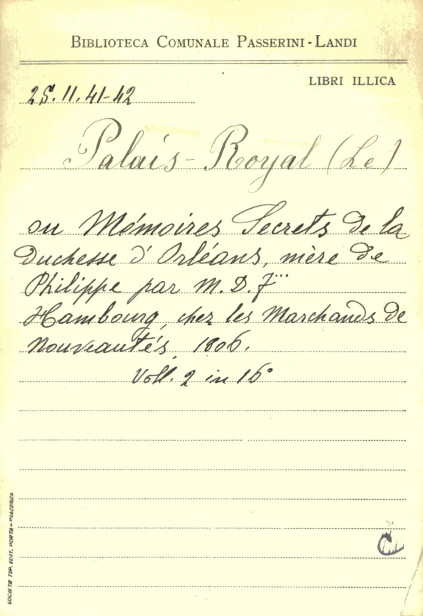 BIBLIOTECA COMUNALE PASSERINI-LANDI
LIBRI ILLICA
2S.11.41-42
Palais-Royal (Le)
ou Mémoires Secrets de la
Duchesse d'Orléans, mère de
Philippe par M. D. F***
Hambourg, chez les Marchands de
Nouveautés, 1806.
Voll. 2 in 16°
SOCIETÀ TIP. EDIT. PORTA - PIACENZA